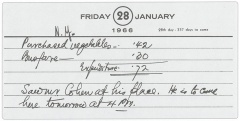 FRIDAY 28 JANUARY
1966 28th day - 337 days to come
N.Y.
Purchased vegetables. .42
Busfare. .30
Expenditure: .72
Saw Cohen at his place. He is to come
here tomorrow at 4 PM.